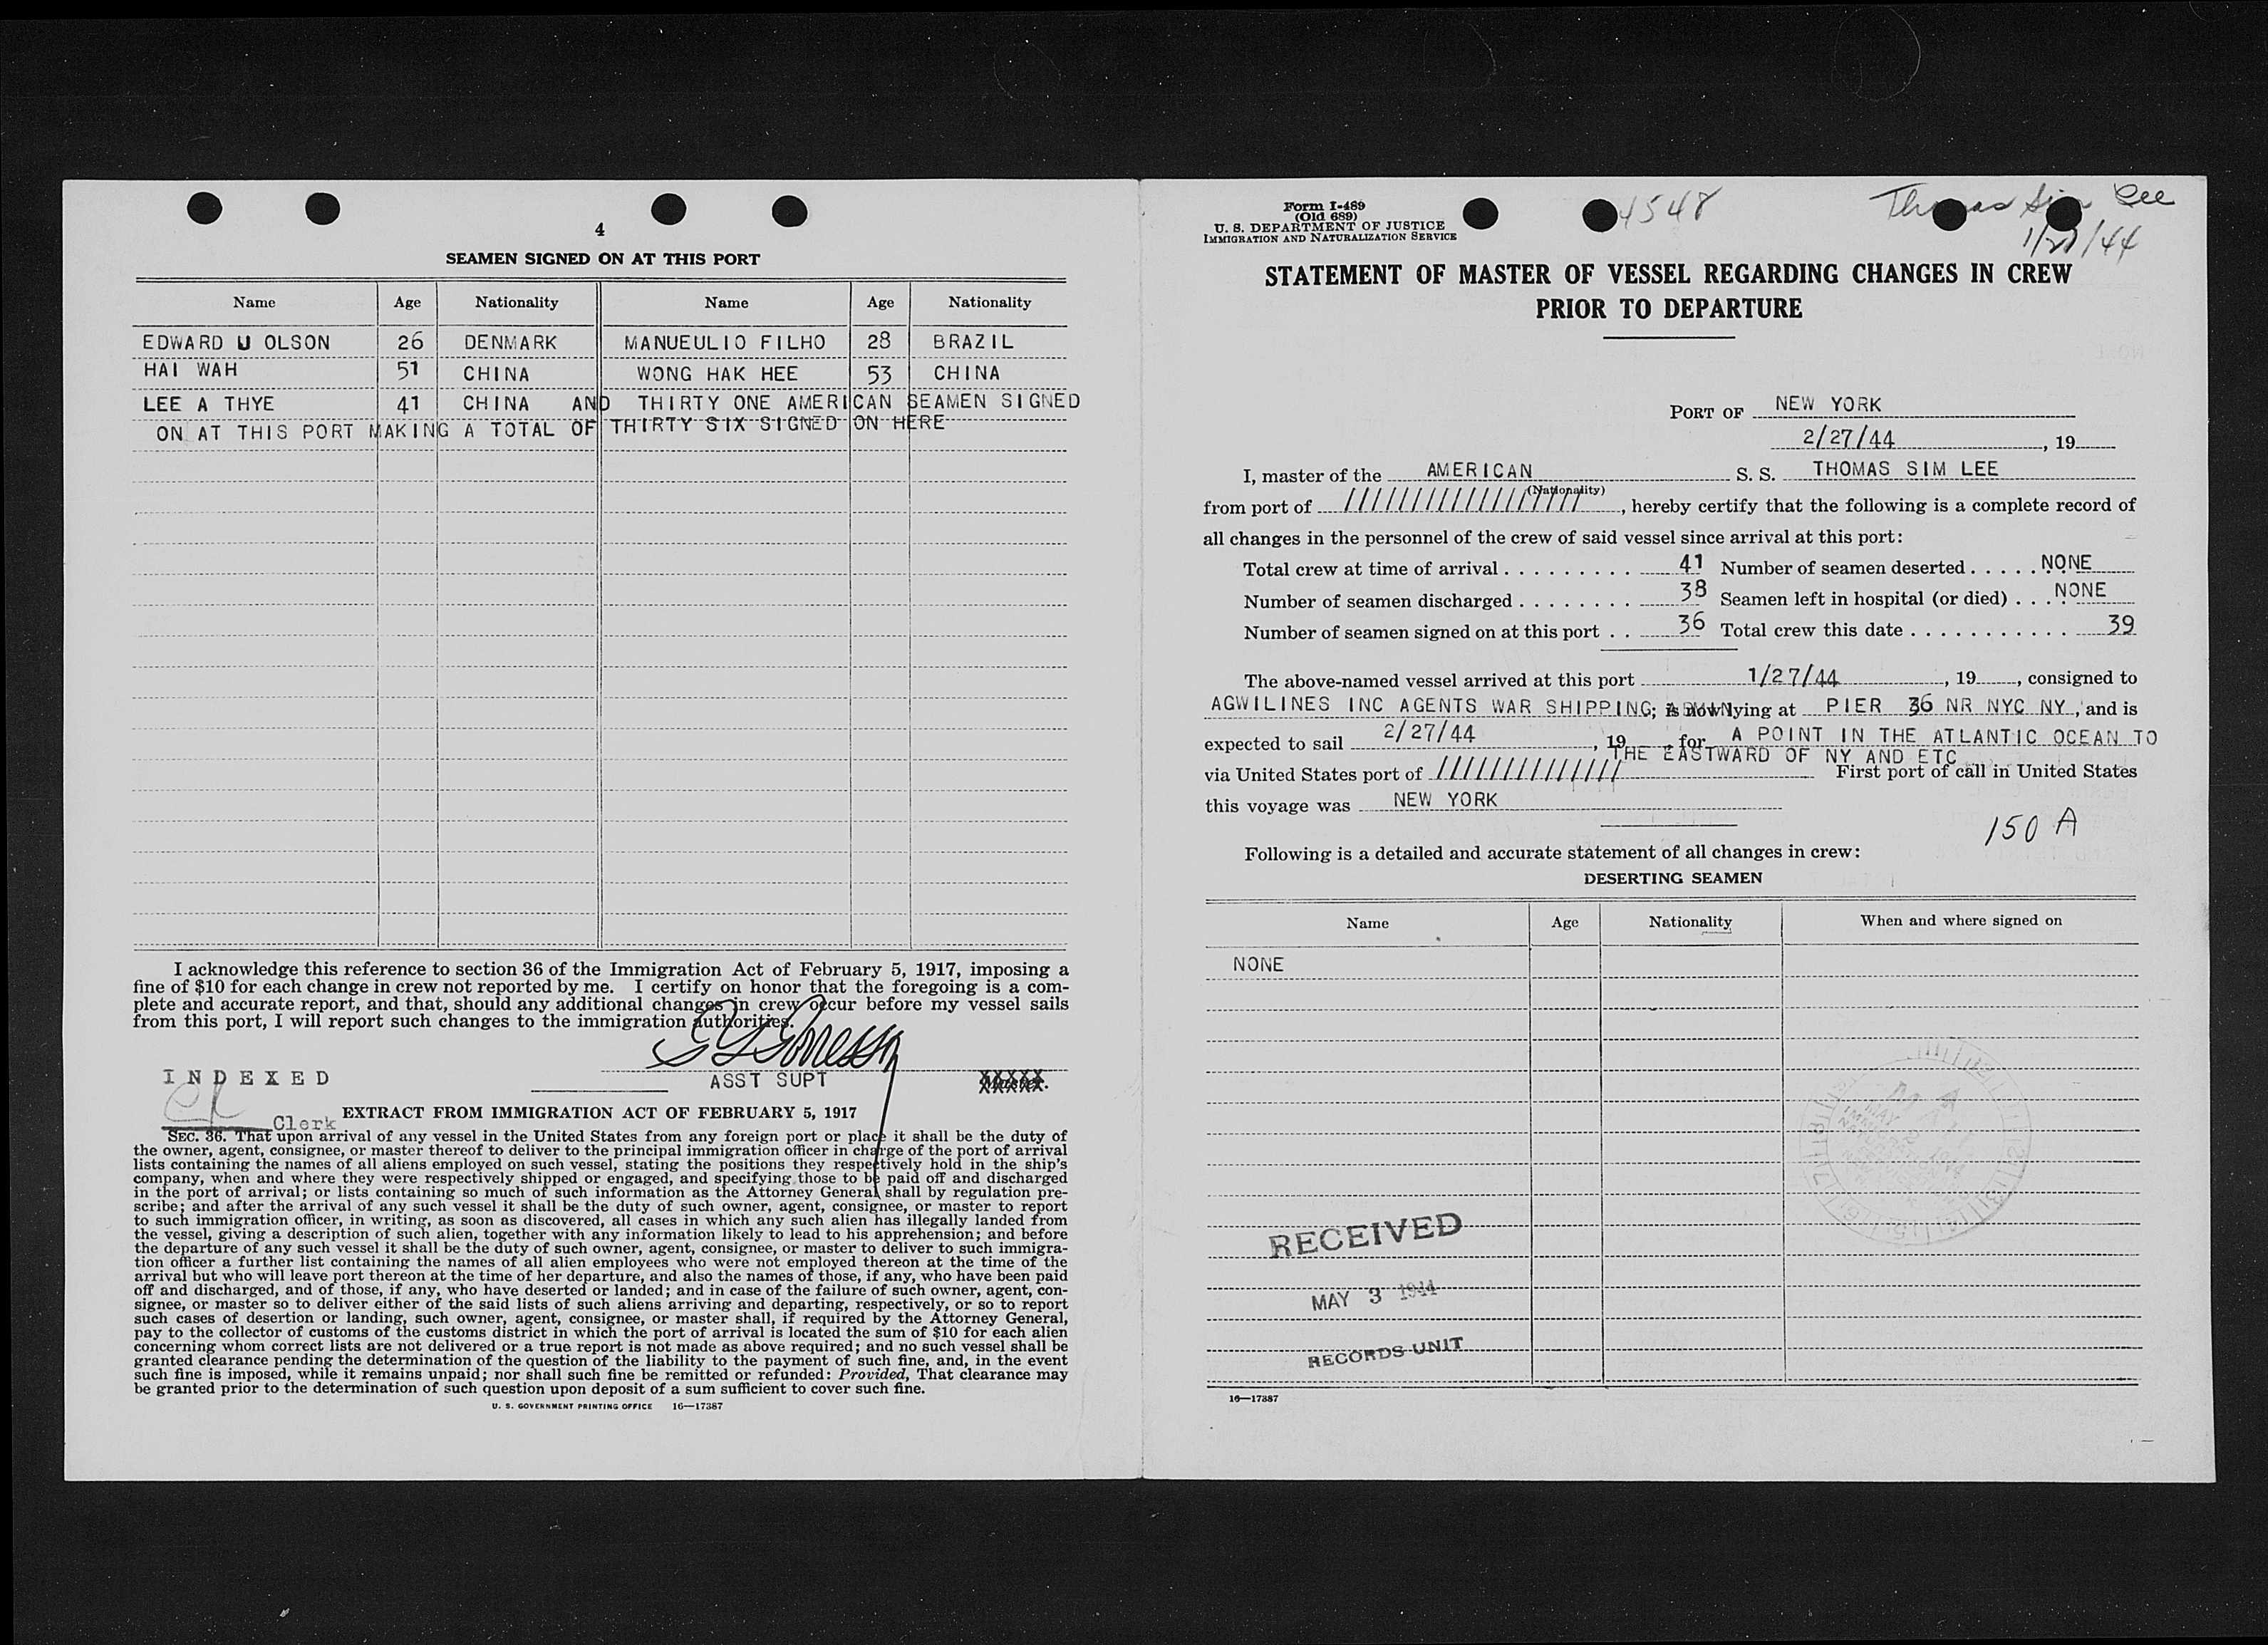 4
SEAMEN SIGNED ON AT THIS PORT
Name Age Nationality Name Age Nationality
EDWARD U OLSON 26 DENMARK MANUEULIO FILHO 28 BRAZIL
HAI WAH 51 CHINA WONG HAK HEE 53 CHINA
LEE A THYE 41 CHINA AND THIRTY ONE AMERICAN SEAMEN SIGNED
ON AT THIS PORT MAKING A TOTAL OF THIRTY SIX SIGNED ON HERE
I acknowledge this reference to section 36 of the Immigration Act of February 5, 1917, imposing a
fine of $10 for each change in crew not reported by me. I certify on honor that the foregoing is a com-
plete and accurate report, and that, should any additional changes in crew occur before my vessel sails
from this port, I will report such changes to the immigration authorities.
INDEXED
ASST SUPT
Clerk
EXTRACT FROM IMMIGRATION ACT OF FEBRUARY 5, 1917
SEC. 36. That upon arrival of any vessel in the United States from any foreign port or place it shall be the duty of
the owner, agent, consignee, or master thereof to deliver to the principal immigration officer in charge of the port of arrival
lists containing the names of all aliens employed on such vessel, stating the positions they respectively hold in the ship's
company, when and where they were respectively shipped or engaged, and specifying those to be paid off and discharged
in the port of arrival; or lists containing so much of such information as the Attorney General shall by regulation pre-
scribe; and after the arrival of any such vessel it shall be the duty of such owner, agent, consignee, or master to report
to such immigration officer, in writing, as soon as discovered, all cases in which any such alien has illegally landed from
the vessel, giving a description of such alien, together with any information likely to lead to his apprehension; and before
the departure of any such vessel it shall be the duty of such owner, agent, consignee, or master to deliver to such immigra-
tion officer a further list containing the names of all alien employees who were not employed thereon at the time of the
arrival but who will leave port thereon at the time of her departure, and also the names of those, if any, who have been paid
off and discharged, and of those, if any, who have deserted or landed; and in case of the failure of such owner, agent, con-
signee, or master so to deliver either of the said lists of such aliens arriving and departing, respectively, or so to report
such cases of desertion or landing, such owner, agent, consignee, or master shall, if required by the Attorney General,
pay to the collector of customs of the customs district in which the port of arrival is located the sum of $10 for each alien
concerning whom correct lists are not delivered or a true report is not made as above required; and no such vessel shall be
granted clearance pending the determination of the question of the liability to the payment of such fine, and, in the event
such fine is imposed, while it remains unpaid; nor shall such fine be remitted or refunded: Provided, That clearance may
be granted prior to the determination of such question upon deposit of a sum sufficient to cover such fine.
U. S. GOVERNMENT PRINTING OFFICE 16—17387
Form I-489
(Old 689)
U. S. DEPARTMENT OF JUSTICE
IMMIGRATION AND NATURALIZATION SERVICE
4548
Thomas Sim Lee
1/27/44
STATEMENT OF MASTER OF VESSEL REGARDING CHANGES IN CREW
PRIOR TO DEPARTURE
PORT OF NEW YORK
2/27/44, 19
I, master of the AMERICAN S. S. THOMAS SIM LEE
(Nationality)
from port of //////////////////, hereby certify that the following is a complete record of
all changes in the personnel of the crew of said vessel since arrival at this port:
Total crew at time of arrival 41 Number of seamen deserted NONE
Number of seamen discharged 38 Seamen left in hospital (or died) NONE
Number of seamen signed on at this port 36 Total crew this date 39
The above-named vessel arrived at this port 1/27/44, 19, consigned to
AGWILINES INC AGENTS WAR SHIPPING ADMIN; is now lying at PIER 36 NR NYC NY, and is
expected to sail 2/27/44, 19, for A POINT IN THE ATLANTIC OCEAN TO
THE EASTWARD OF NY AND ETC
via United States port of /////////////// First port of call in United States
this voyage was NEW YORK
150 A
Following is a detailed and accurate statement of all changes in crew:
DESERTING SEAMEN
Name Age Nationality When and where signed on
NONE
RECEIVED
MAY 3 1944
RECORDS UNIT
16—17387